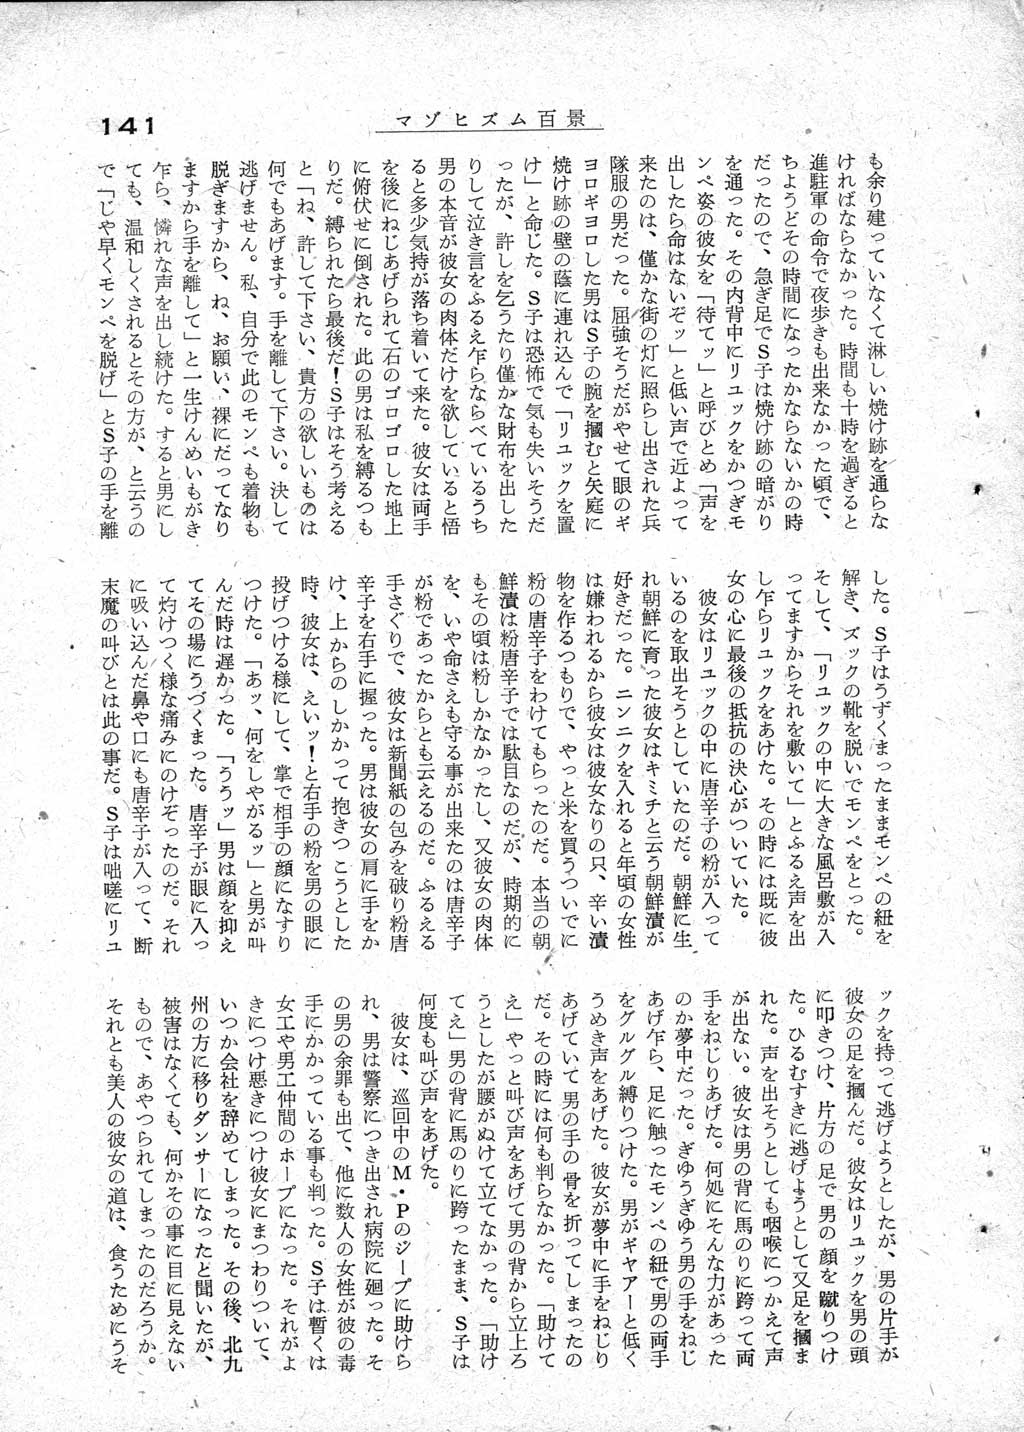 141
マゾヒズム百景
も余り建っていなくて淋しい焼け跡を通らな
ければならなかった。時間も十時を過ぎると
進駐軍の命令で夜歩きも出来なかった頃で、
ちようどその時間になったかならないかの時
だったので、急ぎ足でS子は焼け跡の暗がり
を通った。その内背中にリュックをかつぎモ
ンペ姿の彼女を「待てッ」と呼びとめ「声を
出したら命はないぞッ」と低い声で近よって
来たのは、僅かな街の灯に照らし出された兵
隊服の男だった。屈強そうだがやせて眼のギ
ヨロギヨロした男はS子の腕を掴むと矢庭に
焼け跡の壁の蔭に連れ込んで「リュックを置
け」と命じた。S子は恐怖で気も失いそうだ
ったが、許しを乞うたり僅かな財布を出した
りして泣き言をふるえ乍らならべているうち
男の本音が彼女の肉体だけを欲していると悟
ると多少気持が落ち着いて来た。彼女は両手
を後にねじあげられて石のゴロゴロした地上
に俯伏せに倒された。此の男は私を縛るつも
りだ。縛られたら最後だ!S子はそう考える
と「ね、許して下さい、貴方の欲しいものは
何でもあげます。手を離して下さい。決して
逃げません。私、自分で此のモンペも着物も
脱ぎますから、ね、お願い、裸にだってなり
ますから手を離して」と一生けんめいもがき
乍ら、憐れな声を出し続けた。すると男にし
ても、温和しくされるとその方が、と云うの
で「じや早くモンペを脱げ」とS子の手を離
した。S子はうずくまったままモンペの紐を
解き、ズックの靴を脱いでモンペをとった。
そして、「リュックの中に大きな風呂敷が入
ってますからそれを敷いて」とふるえ声を出
し乍らリュックをあけた。その時には既に彼
女の心に最後の抵抗の決心がついていた。
彼女はリュックの中に唐辛子の粉が入って
いるのを取出そうとしていたのだ。朝鮮に生
れ朝鮮に育った彼女はキミチと云う朝鮮漬が
好きだった。ニンニクを入れると年頃の女性
は嫌われるから彼女は彼女なりの只、辛い漬
物を作るつもりで、やっと米を買うついでに
粉の唐辛子をわけてもらったのだ。本当の朝
鮮漬は粉唐辛子では駄目なのだが、時期的に
もその頃は粉しかなかったし、又彼女の肉体
を、いや命さえも守る事が出来たのは唐辛子
が粉であったからとも云えるのだ。ふるえる
手さぐりで、彼女は新聞紙の包みを破り粉唐
辛子を右手に握った。男は彼女の肩に手をか
け、上からのしかかって抱きつこうとした
時、彼女は、えいッ!と右手の粉を男の眼に
投げつける様にして、掌で相手の顔になすり
つけた。「あッ、何をしやがるッ」と男が叫
んだ時は遅かった。「ううッ」男は顔を抑え
てその場にうづくまった。唐辛子が眼に入っ
て灼けつく様な痛みにのけぞったのだ。それ
に吸い込んだ鼻や口にも唐辛子が入って、断
末魔の叫びとは此の事だ。S子は咄嗟にリュ
ックを持って逃げようとしたが、男の片手が
彼女の足を掴んだ。彼女はリュックを男の頭
に叩きつけ、片方の足で男の顔を蹴りつけ
た。ひるむすきに逃げようとして又足を掴ま
れた。声を出そうとしても咽喉につかえて声
が出ない。彼女は男の背に馬のりに跨って両
手をねじりあげた。何処にそんな力があった
のか夢中だった。ぎゆうぎゆう男の手をねじ
あげ乍ら、足に触ったモンペの紐で男の両手
をグルグル縛りつけた。男がギヤアーと低く
うめき声をあげた。彼女が夢中に手をねじり
あげていて男の手の骨を折ってしまったの
だ。その時には何も判らなかった。「助けて
え」やっと叫び声をあげて男の背から立上ろ
うとしたが腰がぬけて立てなかった。「助け
てえ」男の背に馬のりに跨ったまま、S子は
何度も叫び声をあげた。
彼女は、巡回中のM・Pのジープに助けら
れ、男は警察につき出され病院に廻った。そ
の男の余罪も出て、他に数人の女性が彼の毒
手にかかっている事も判った。S子は暫くは
女工や男工仲間のホープになった。それがよ
きにつけ悪きにつけ彼女にまつわりついて、
いつか会社を辞めてしまった。その後、北九
州の方に移りダンサーになったと聞いたが、
被害はなくても、何かその事に目に見えない
もので、あやつられてしまったのだろうか。
それとも美人の彼女の道は、食うためにうそ